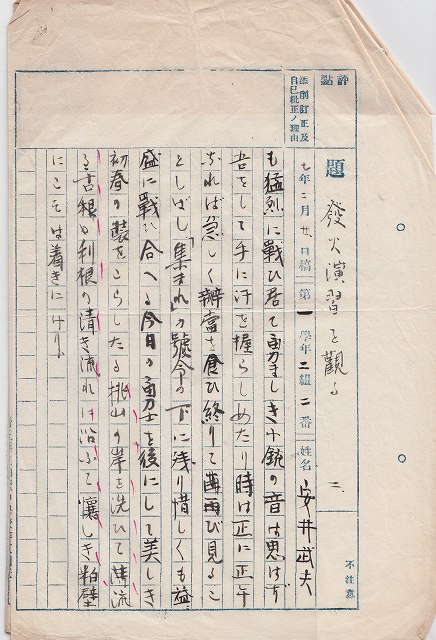 評點
添削訂正及
自己批正ノ理由
題 發火演習を觀る 二、
七年二月廿 日稿 第一學年二組二番 姓名 安井武夫
不注意
も猛烈に戰ひ居て勇ましき小銃の音は思はず
吾をして手に汗を握らしめたり時は正に正午
なれば急しく辨當を食ひ終りて再び見るこ
としばし「集まれ」の號令の下に残り惜しくも益
盛に戰ひ合へる今日の勇士を後にして美しき
初春の裝をこらしたる桃山の岸を洗ひて流
る 利根の清き流れに沿ふて懐しき粕壁
にこそは着きにけり